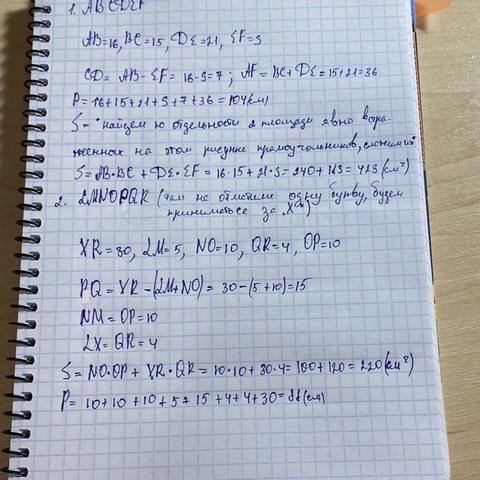 1. ABCDEF
AB=16, BC=15, DE=21, EF=9
CD= AB-EF= 16-9=7; AF= BC+DE=15+21=36
P=16+15+21+9+7+36=104(см)
S=" найдем по отдельности 2 площади явно выра-
женных на этом рисунке прямоугольников, сложим их"
S=AB·BC+DE·EF=16·15+21·9=240+189=429(см²)
2. LMNOPQR (там не отметили одну букву, будем
принимать ее за "X")
XR=30, LM=5, NO=10, QR=4, OP=10
PQ= XR-(LM+NO)= 30-(5+10)=15
NM=OP=10
LX=QR=4
S= NO·OP+ XR·QR= 10·10+30·4=100+120=220(см²)
P= 10+10+10+5+15+4+4+30=88(см)